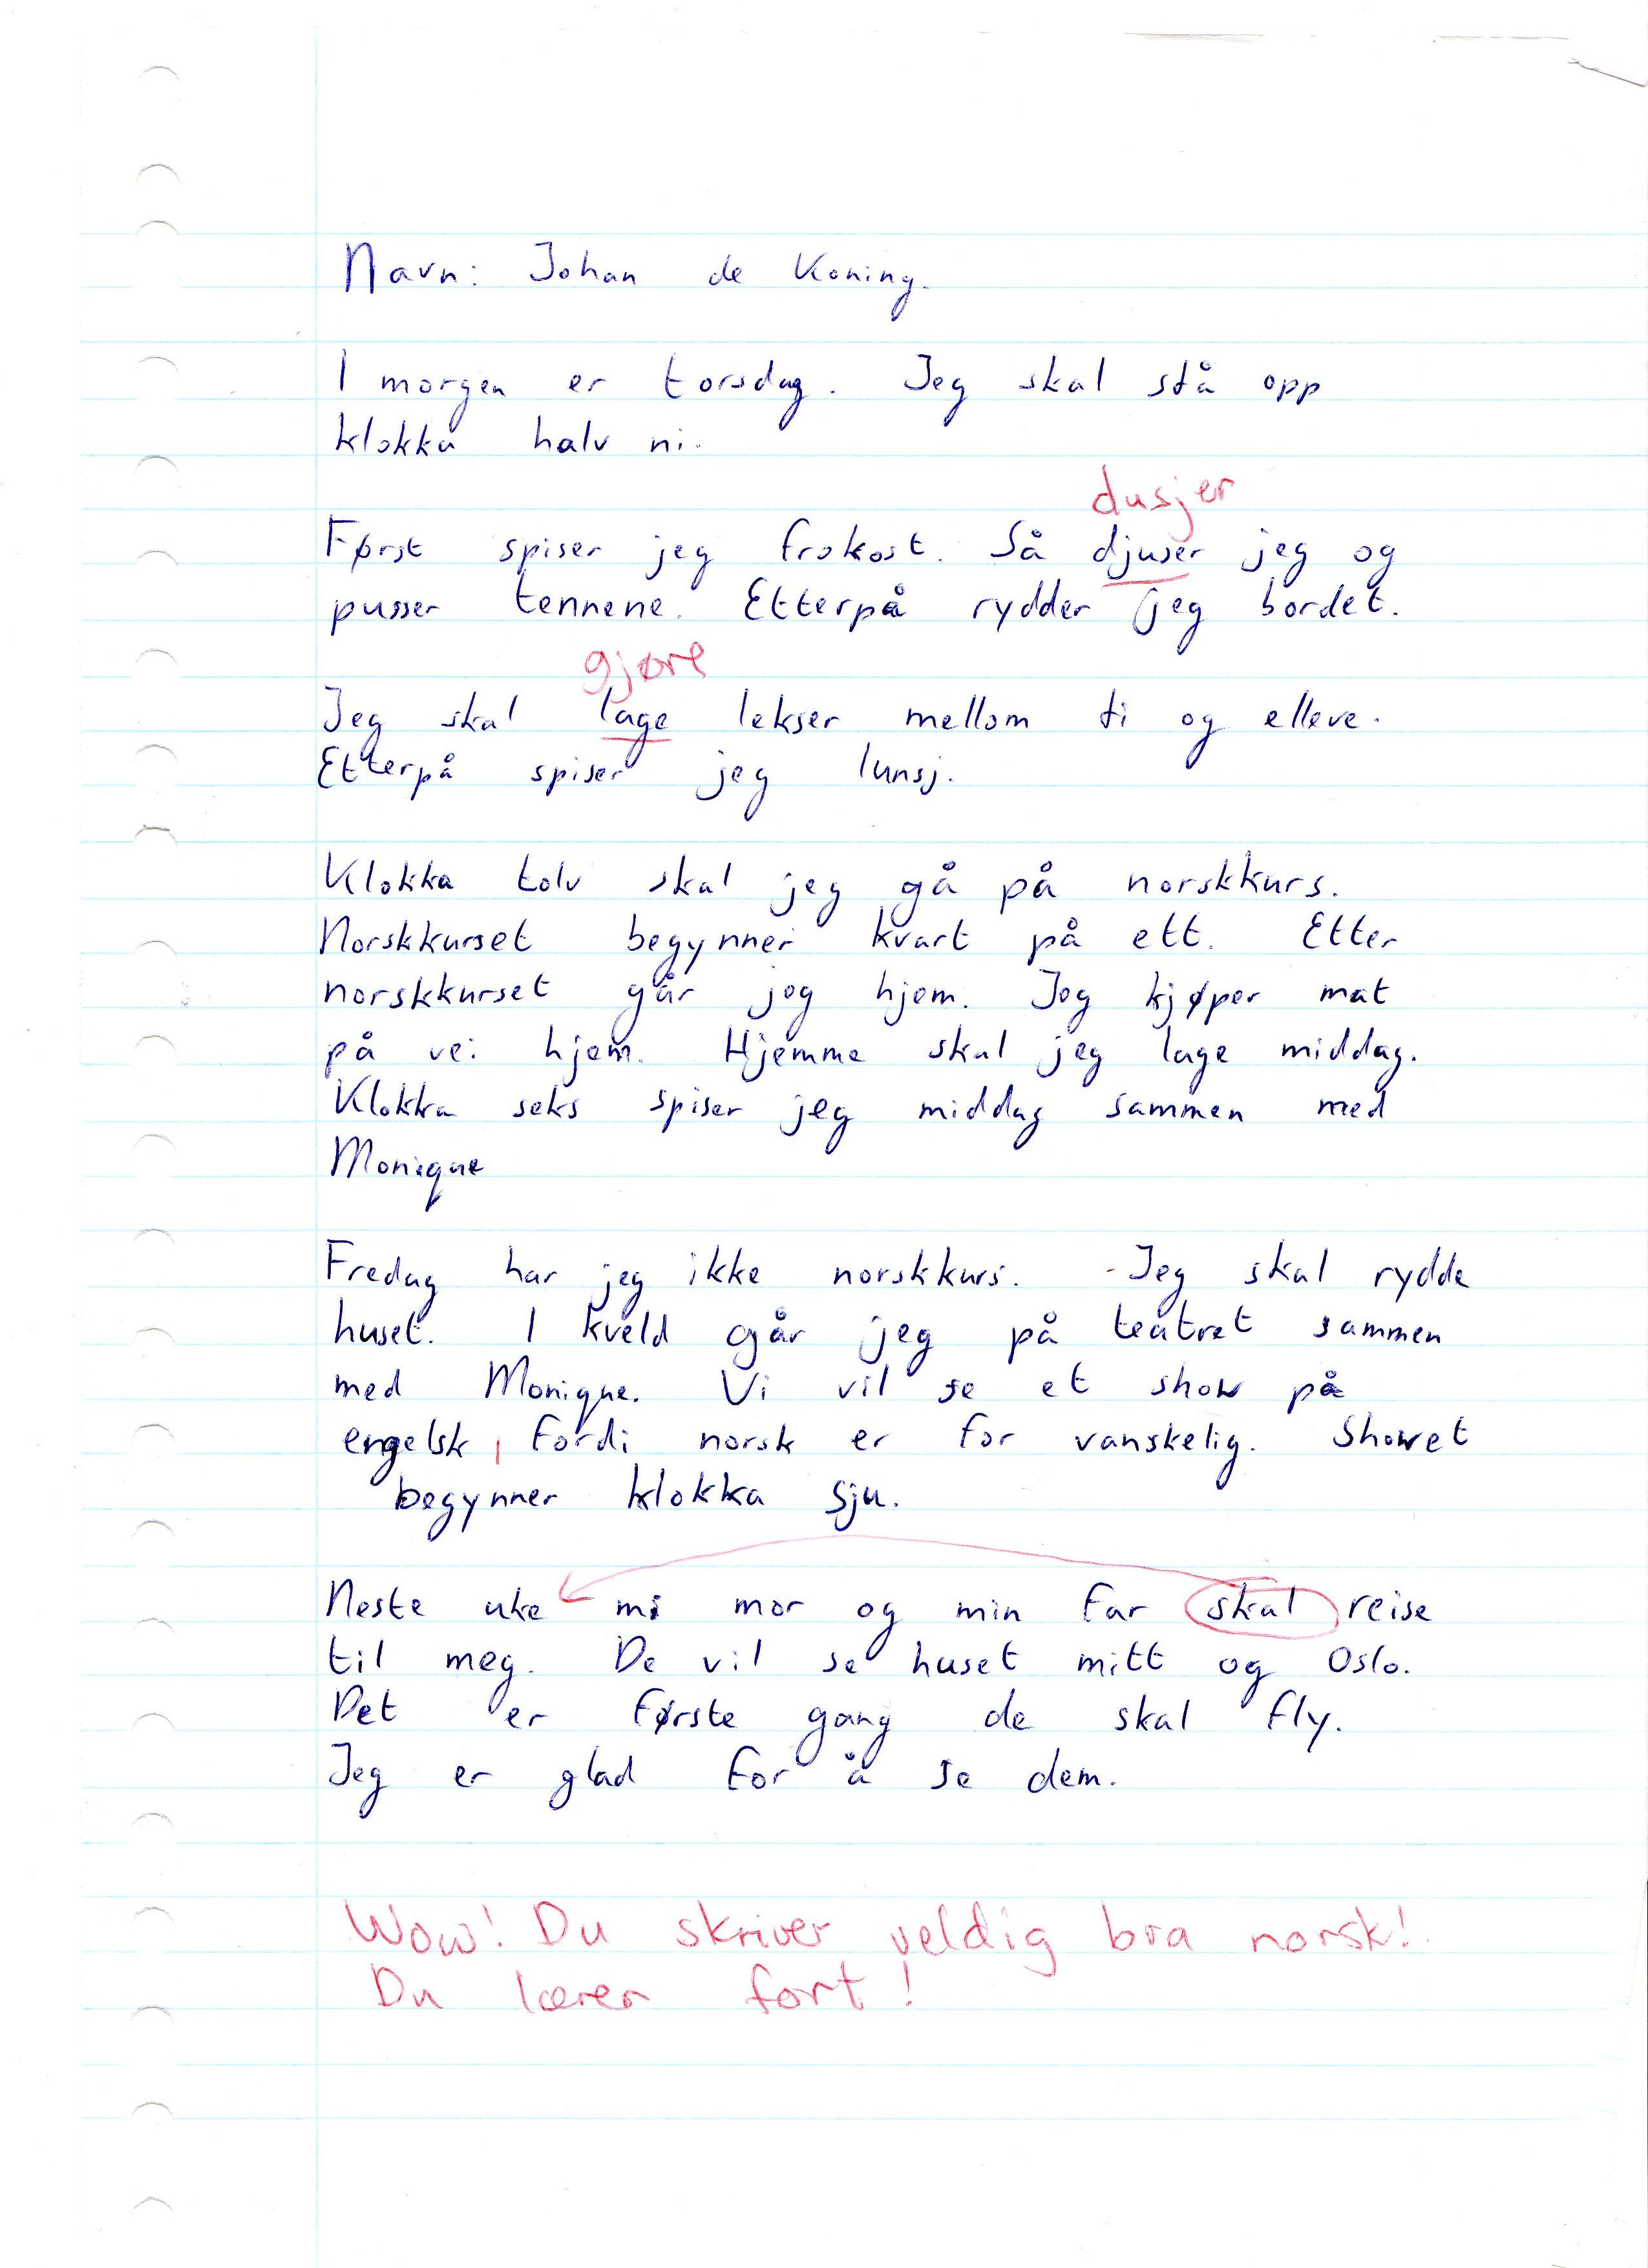 Navn: Johan de Koning.
I morgen er torsdag. Jeg skal stå opp
klokka halv ni.
dusjer
Først spiser jeg frokost. Så djuser jeg og
pusser tennene. Etterpå rydder jeg bordet.
gjøre
Jeg skal lage lekser mellom ti og elleve.
Etterpå spiser jeg lunsj.
Klokka tolv skal jeg gå på norskkurs.
Norskkurset begynner kvart på ett. Etter
norskkurset går jeg hjem. Jeg kjøper mat
på vei hjem. Hjemme skal jeg lage middag.
Klokka seks spiser jeg middag sammen med
Monique
Fredag har jeg ikke norskkurs. Jeg skal rydde
huset. I kveld går jeg på teatret sammen
med Monique. Vi vil se et show på
engelsk, fordi norsk er for vanskelig. Showet
begynner klokka sju.
Neste uke mi mor og min far skal reise
til meg. De vil se huset mitt og Oslo.
Det er første gang de skal fly.
Jeg er glad for å se dem.
Wow! Du skriver veldig bra norsk!
Du lærer fort!